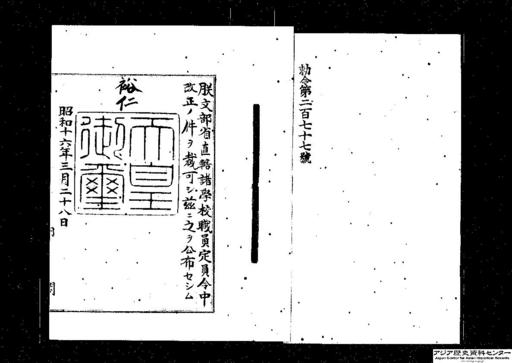 勅令第二百七十七號
朕文部省直轄諸學校職員定員令中
改正ノ件ヲ裁可シ茲ニ之ヲ公布セシム
裕仁
天皇
御璽
昭和十六年三月二十八日
内閣
アジア歴史資料センター
Japan Center for Asian Historical Records